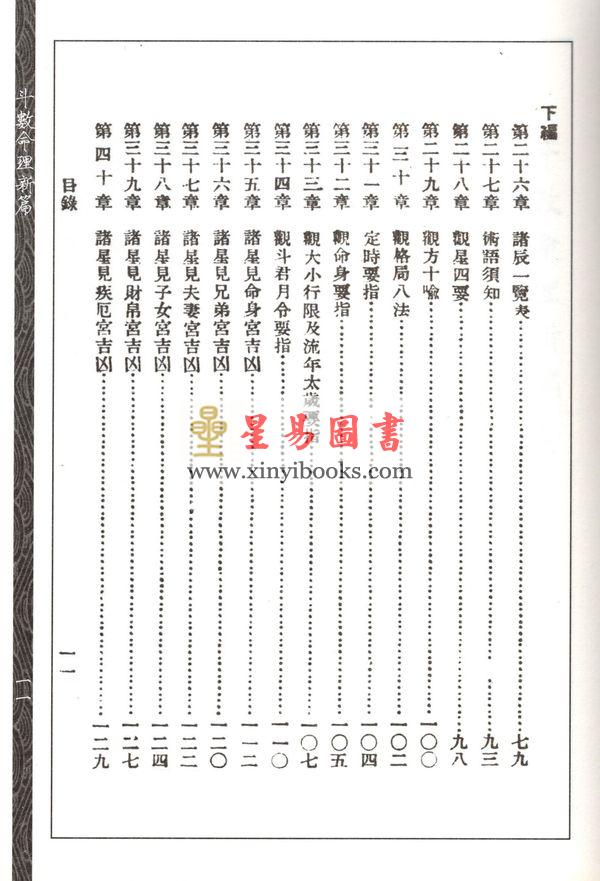 下編
第二十六章 諸辰一覽表……七九
第二十七章 術語須知……九三
第二十八章 觀星四要……九八
第二十九章 觀方十喻……一〇〇
第三十章 觀格局八法……一〇二
第三十一章 定時要指……一〇四
第三十二章 觀命身要指……一〇五
第三十三章 觀大小行限及流年太歲要指……一〇七
第三十四章 觀斗君月令要指……一一〇
第三十五章 諸星見命身宮吉凶……一一二
第三十六章 諸星見兄弟宮吉凶……一二〇
第三十七章 諸星見夫妻宮吉凶……一二二
第三十八章 諸星見子女宮吉凶……一二四
第三十九章 諸星見財帛宮吉凶……一二七
第四十章 諸星見疾厄宮吉凶……一二九
目錄 一一
斗數命理新篇 一一
星易圖書
www.xinyibooks.com